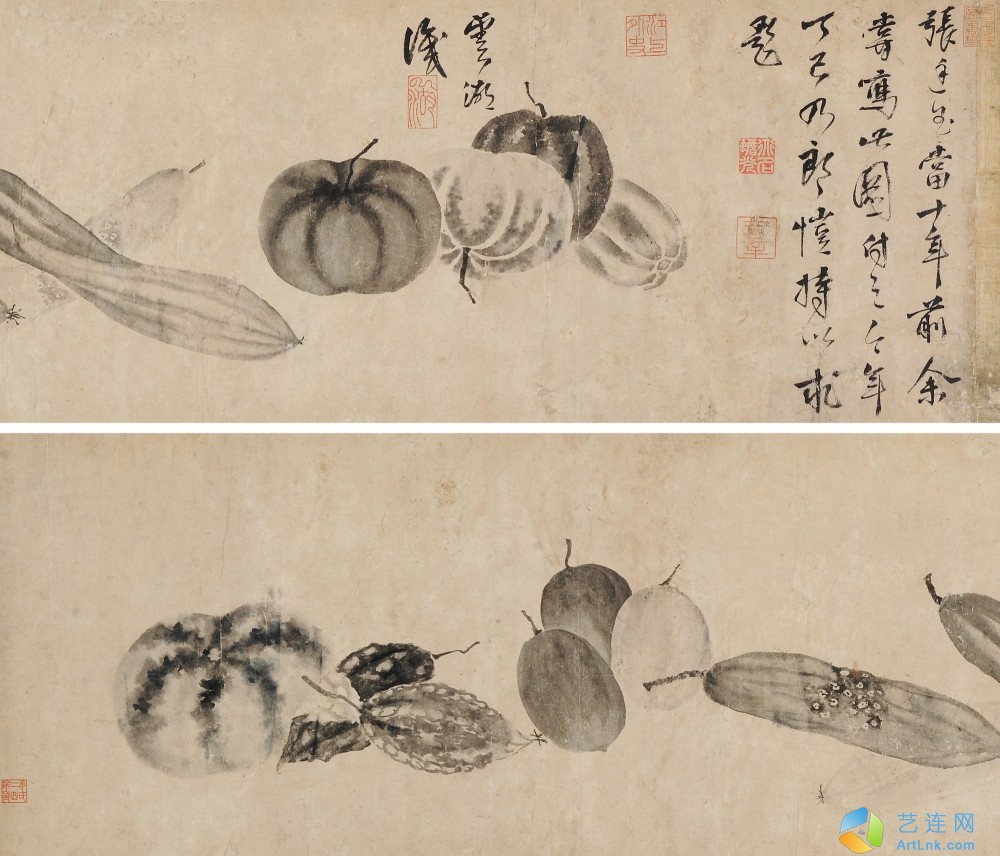 張當十年前余
嘗寫此圖付之今年
丁巳乃郎愷持以求
題
雲湖
識
艺连网
ArtLnk.com